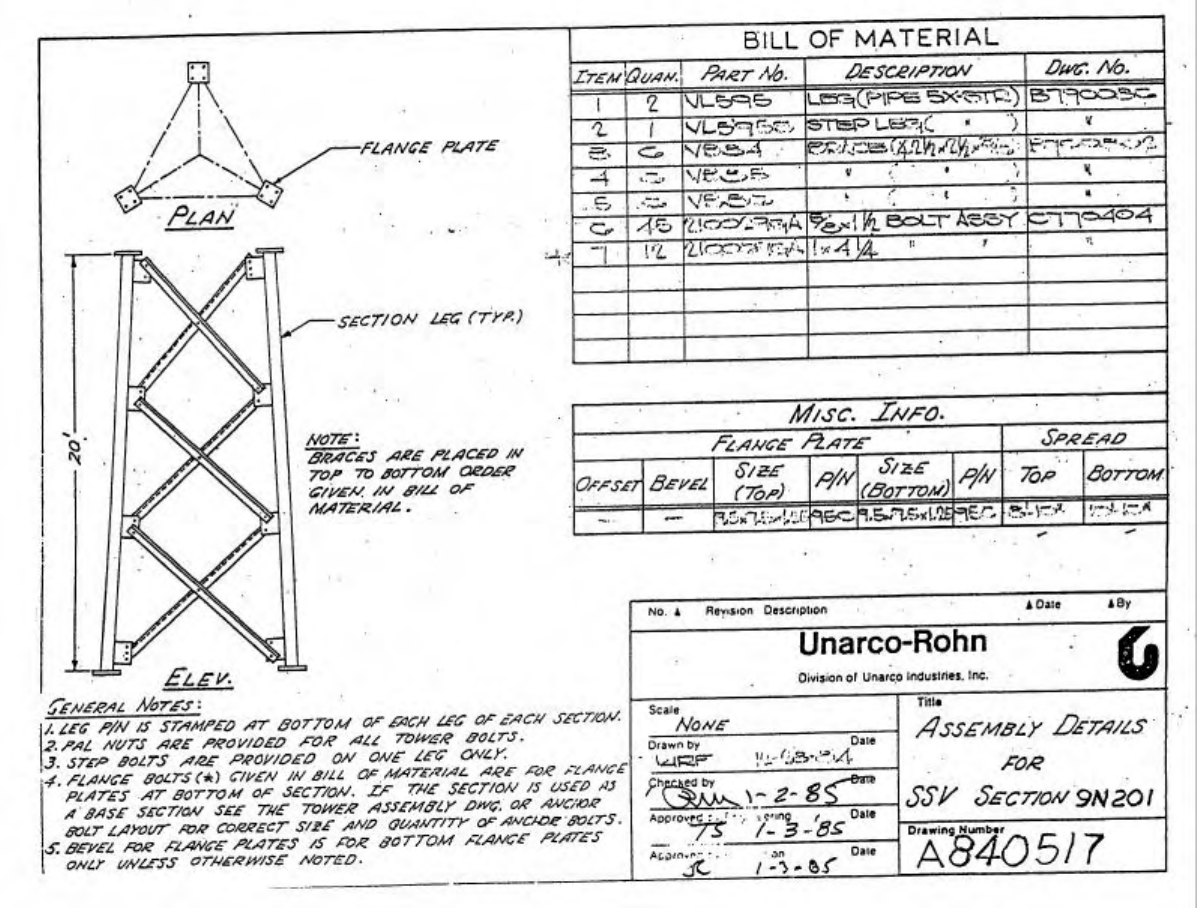 BILL OF MATERIAL
ITEM QUAN. PART NO. DESCRIPTION DWG. NO.
1 2 VL595 LEG (PIPE 5X-STR)
2 1 STEP LEG ( " ) "
3 6
4 " ( " ) "
5 " ( " ) "
6 45 5/8 x 1 1/2 BOLT ASSY C770404
7 12 1 x 4 1/4 " " "
FLANGE PLATE
PLAN
SECTION LEG (TYP.)
20'
NOTE:
BRACES ARE PLACED IN
TOP TO BOTTOM ORDER
GIVEN IN BILL OF
MATERIAL.
ELEV.
MISC. INFO.
FLANGE PLATE SPREAD
OFFSET BEVEL SIZE (TOP) P/N SIZE (BOTTOM) P/N TOP BOTTOM
- - 95C 9.5x9.5x1.25 95C
GENERAL NOTES:
1. LEG P/N IS STAMPED AT BOTTOM OF EACH LEG OF EACH SECTION.
2. PAL NUTS ARE PROVIDED FOR ALL TOWER BOLTS.
3. STEP BOLTS ARE PROVIDED ON ONE LEG ONLY.
4. FLANGE BOLTS (*) GIVEN IN BILL OF MATERIAL ARE FOR FLANGE
PLATES AT BOTTOM OF SECTION. IF THE SECTION IS USED AS
A BASE SECTION SEE THE TOWER ASSEMBLY DWG. OR ANCHOR
BOLT LAYOUT FOR CORRECT SIZE AND QUANTITY OF ANCHOR BOLTS.
5. BEVEL FOR FLANGE PLATES IS FOR BOTTOM FLANGE PLATES
ONLY UNLESS OTHERWISE NOTED.
No. ▲ Revision Description ▲ Date ▲ By
Unarco-Rohn
Division of Unarco Industries, Inc.
Scale
NONE
Drawn by Date
Checked by Date
1-2-85
Approved Date
TS 1-3-85
Date
1-3-85
Title
ASSEMBLY DETAILS
FOR
SSV SECTION 9N201
Drawing Number
A840517